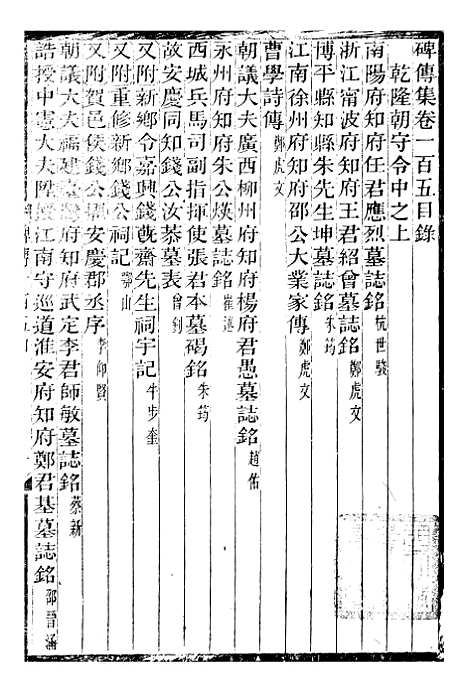 碑傳集卷一百五目錄
乾隆朝守令中之上
南陽府知府任君應烈墓誌銘 杭世駿
浙江甯波府知府王君紹曾墓誌銘 鄭虎文
博平縣知縣朱先生坤墓誌銘 朱筠
江南徐州府知府邵公大業家傳 鄭虎文
曹學詩傳 鄭虎文
朝議大夫廣西柳州府知府楊府君愚墓誌銘 趙佑
永州府知府朱公煐墓誌銘 崔述
西城兵馬司副指揮使張君本墓碣銘 朱筠
故安慶同知錢公汝恭墓表 曾釗
又附新鄉令嘉興錢旣齋先生祠宇記 牛步奎
又附重修新鄉錢公祠記 山
又附賀邑侯錢公擢安慶郡丞序 李仰賢
朝議大夫福建臺灣府知府武定李君師敏墓誌銘 蔡新
誥授中憲大夫陞授江南守巡道淮安府知府鄭君基墓誌銘 邵晉涵